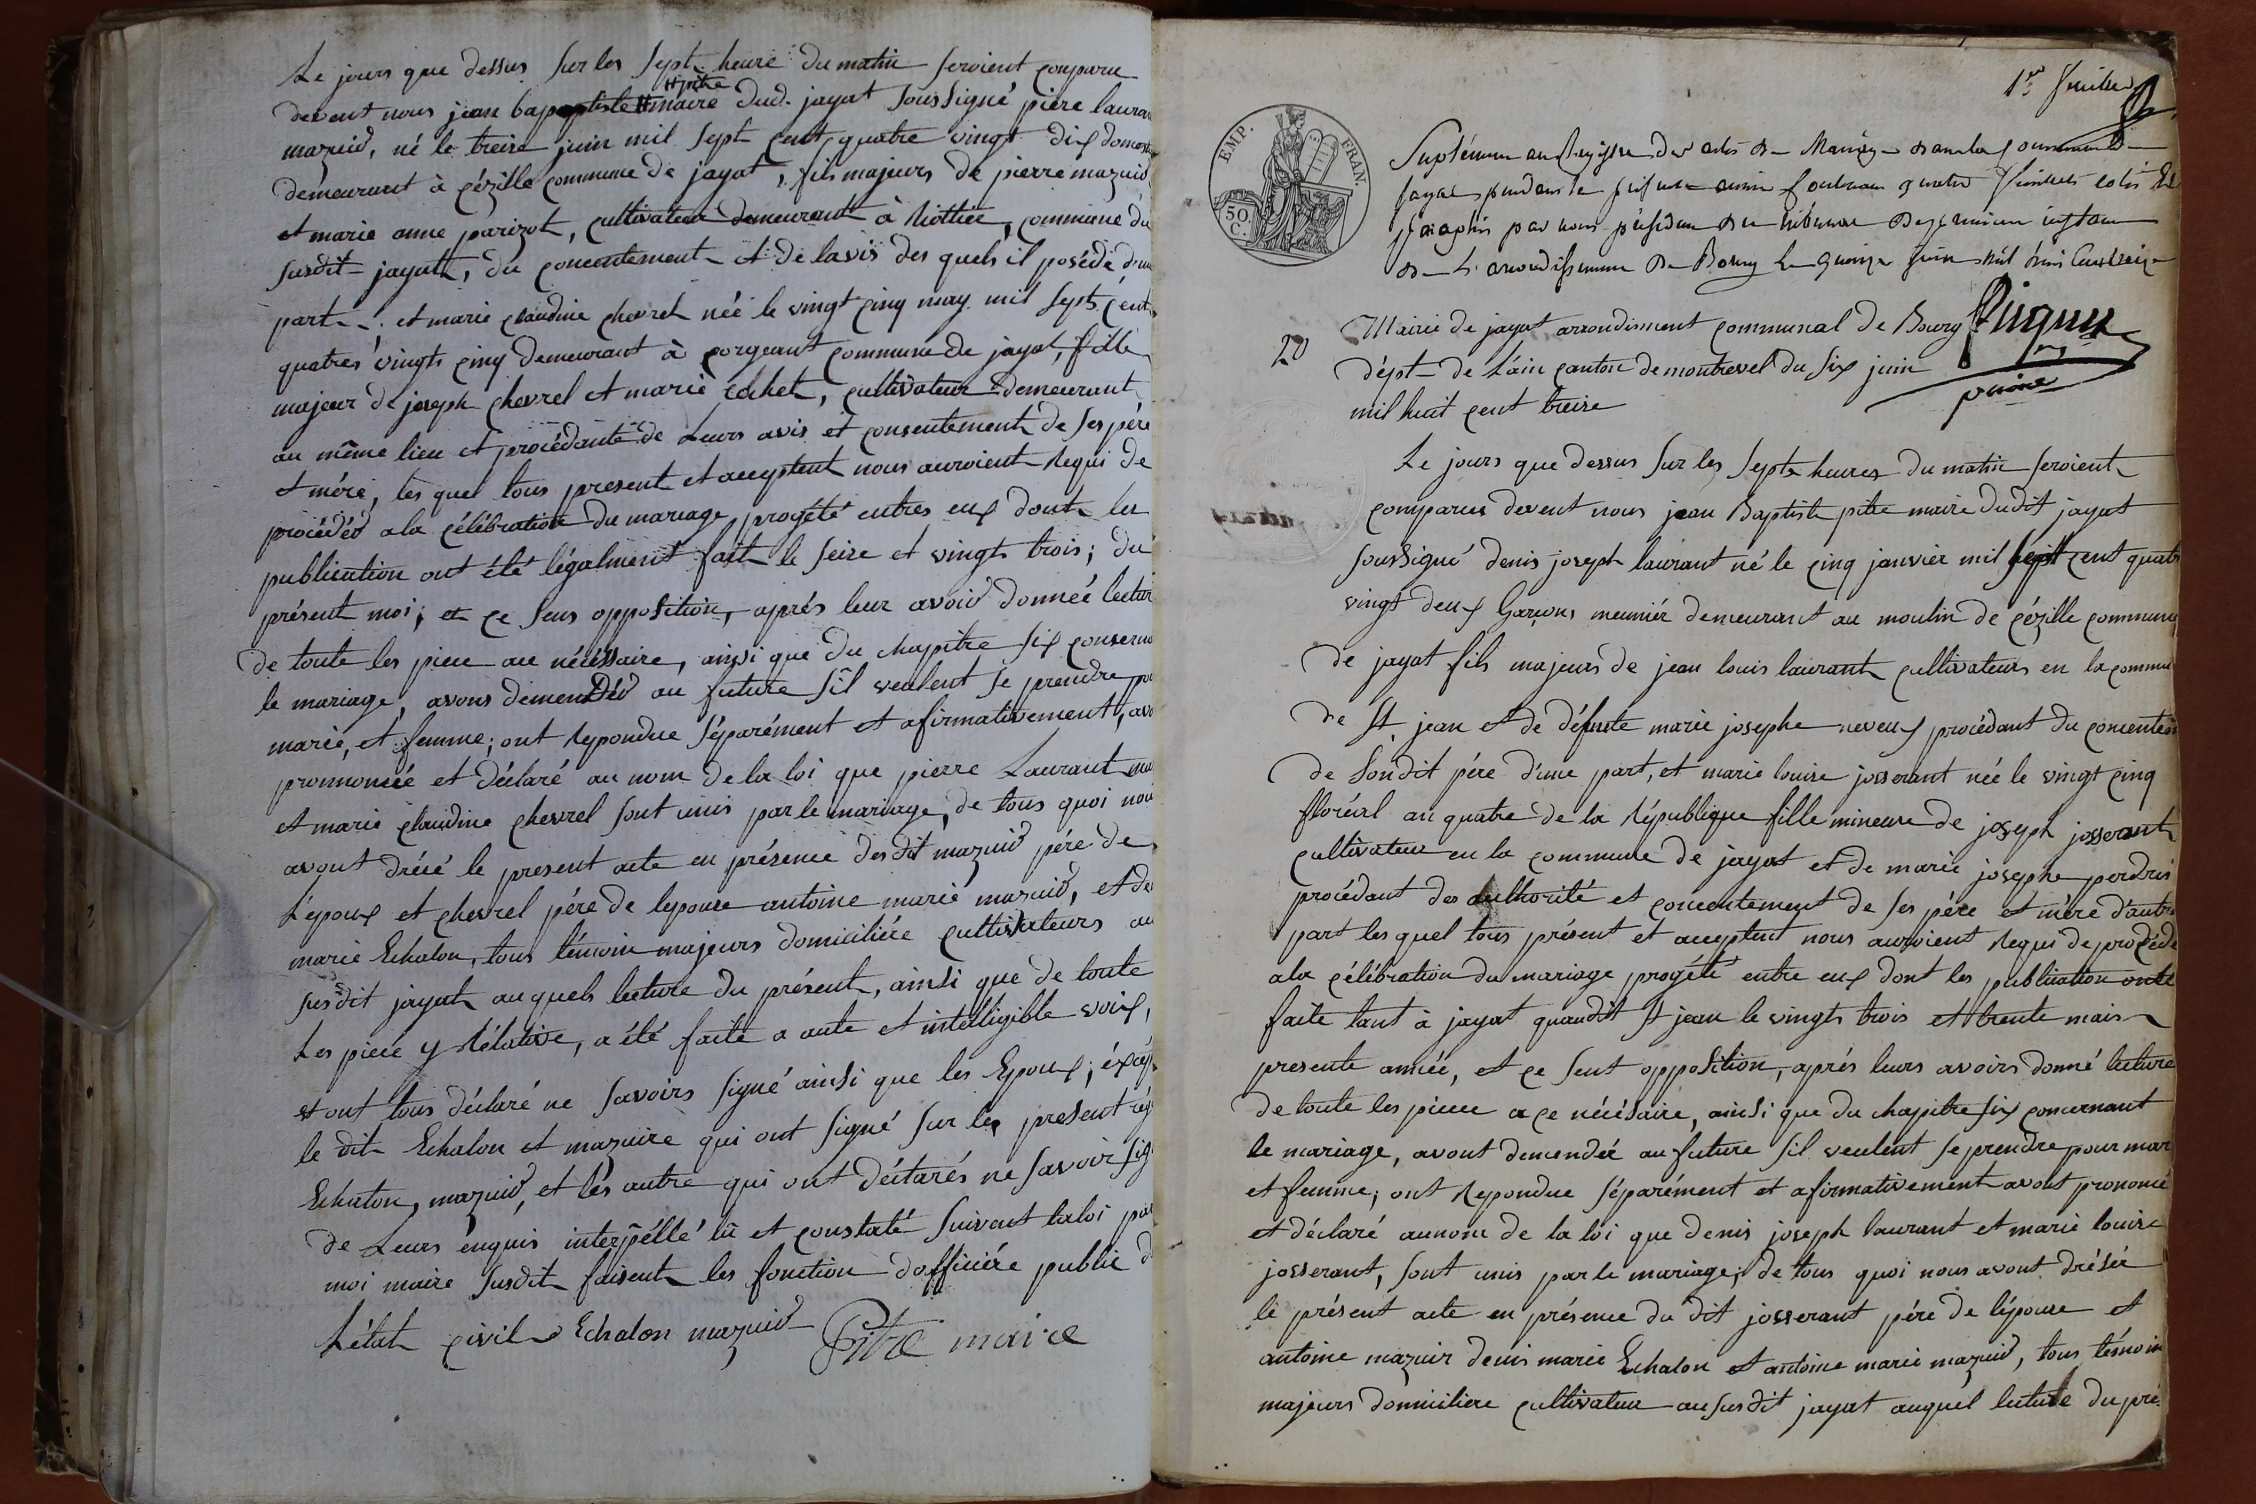 Le jours que dessus sur les sept heure du matin seroient conparu
devent nous jean baptiste # maire dud. jayat soussigné piere lauran
# pitre
mazuir, né le treire juin mil sept cent quatre vingt dix domes
demeurant à cézille commune de jayat, fils majeurs de pierre mazuir
et marie anne parizot, cultivateur demeurant à Niottiee, commune du
susdit jayat, du concentement et de lavis des quels il posédé d'une
part, et marie claudine chevrel née le vingt cinq may mil sept cent
quatres vingts cinq demeurant à corgeant commune de jayat, fille
majeur de joseph chevrel et marie cochet, cultivateur demeurant
au même lieu et procédante de Leurs avis et consentement de ses pére
et mére, les quel tous present et acceptent nous auroient Requi de
procédér a la célébration du mariage progété entres eux dont les
publication ont été légalment fait le seire et vingts trois; du
présent moi; et ce sens opposition, aprés leur avoir donnéé lectur
de toute les piece au nécéssaire, ainsi que du chapitre six conserna
le mariage, avons demendér au future s'il veulent se prendre pou
marié, et femme; ont Repondue séparément et afirmativement, avo
pronnoncéé et déclaré au nom de la loi que pierre Laurant ma
et marie claudine chevrel sont unis par le mariage, de tous quoi nou
avont drécé le present acte en présence des dit mazuir pére de
L'epoux et chevrel pére de lepouse antoine marie mazuir, et de
marie Echalon, tous témoin majeurs domiciliére cultivateurs au
susdit jayat auquels lecture du présent, ainsi que de toute
Les piece y Rélative, a été faite a aute et intelligible voix,
et ont tous déclaré ne savoirs signé ainsi que les Epoux; éxcep
le dit Echalon et mazuire qui ont signé sur les present rég
Echalon, mazuir, et les autre qui ont déclarés ne savoir sig
de Leurs enquis interpéllé lu et constaté suivent la loi par
moi maire susdit faisent les fonction dofficiére public d
L'état civil Echalon mazuir Pitre maire
1er feuillet
EMP. FRAN.
50 C.
Suplément au Registre des actes de Mariage de la commune de
jayat pendant la présente année contenant quatre feuillets cotés et
paraphés par nous président du tribunal de premiere instance
de L'arrondissement de Bourg le quinze juin mil huit cent treize
20
Mairie de jayat arrondisment communal de Bourg
dépt de L'ain canton de montrevel du six juin
mil huit cent treire
Le jours que dessus sur les septe heures du matin seroient
comparus devent nous jean Baptiste pitre maire dudit jayat
soussigné denis joseph laurant né le cinq janvier mil sept cent quatr
vingt deux Garçons meuniér demeurant au moulin de cézille commune
de jayat fils majeurs de jean louis laurant cultivateurs en la commu
de St jean et de défunte marie josephe neveux procédant du concentem
de son dit pére d'une part, et marie louise josserant née le vingt cinq
floréal an quatre de la République fille mineure de joseph josserant
cultivateur en la commune de jayat et de marie josephe perdrix
procédant des authorité et concentement de ses pére et mére d'autre
part les quel tous présent et acceptent nous auroient Requi de procéde
a la célébration du mariage progété entre eux dont les publication onte
faite tant à jayat quaudit St jean le vingts trois et trente mais
presente année, et ce sent opposition, aprés leurs avoirs donné lecture
de toute les piece a ce nécésaire, ainsi que du chapitre six concernant
le mariage, avont demendée au future s'il veulent se prendre pour mar
et femme; ont Repondue séparément et afirmativement avont prononcé
et déclaré au nom de la loi que denis joseph laurant et marie louise
josserant, sont unis par le mariage; de tous quoi nous avont drésée
le présent acte en présence du dit josserant pére de l'épouse et
antoine mazuir denis marie Echalon et antoine marie mazuir, tous témoin
majeurs domiciliere cultivateur au susdit jayat auquel lecture du pré